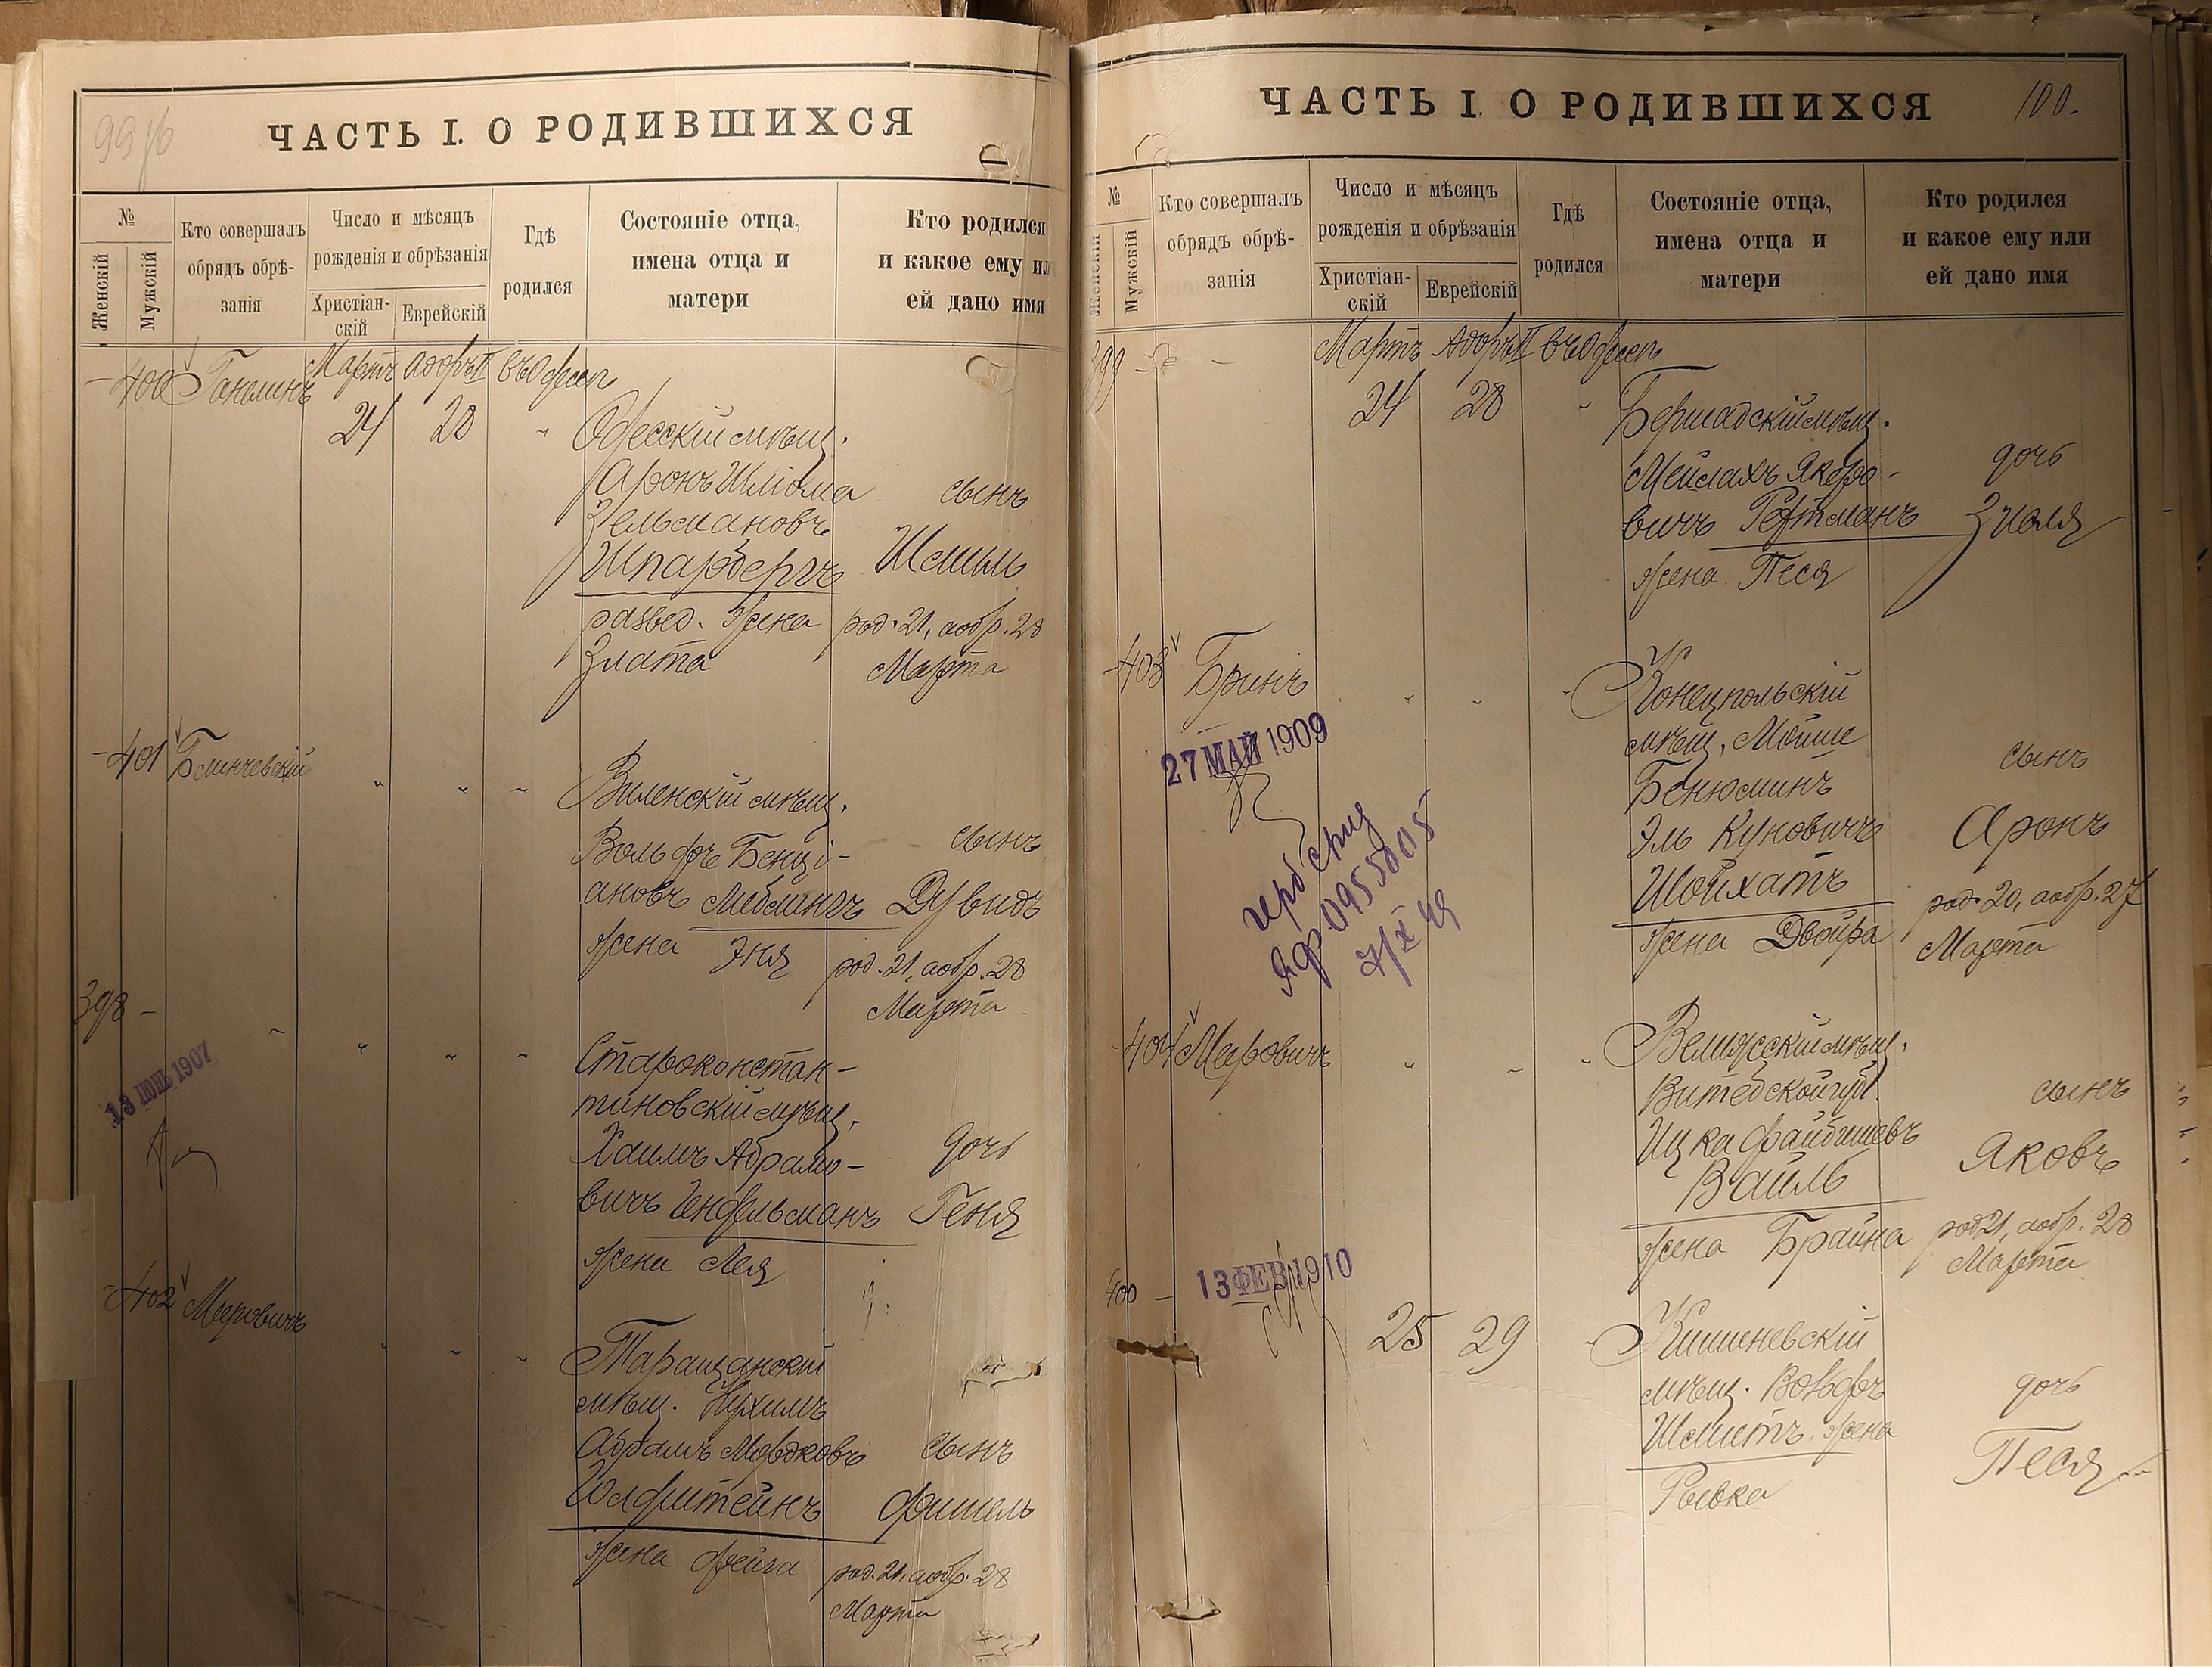 ЧАСТЬ I. О РОДИВШИХСЯ
№
Женскій
Мужскій
Кто совершалъ
обрядъ обрѣ-
занія
Число и мѣсяцъ
рожденія и обрѣзанія
Христіан-
скій
Еврейскій
Гдѣ
родился
Состояніе отца,
имена отца и
матери
Кто родился
и какое ему или
ей дано имя
400 Ганелинъ Мартъ Адоръ II въ Одессѣ
24 28 "
Одесскій мѣщ.
Аронъ Шліома
Зельмановъ
Шпарбергъ
развед. жена
Злата
сынъ
Шмиль
род. 21, а обр. 28
Марта
401 Блинчевскій " " "
Виленскій мѣщ.
Вольфъ Бенці-
ановъ Либлингъ
жена Эня
сынъ
Дувидъ
род. 21, а обр. 28
Марта
398 - " " " "
13 ІЮН 1907
Староконстан-
тиновскій мѣщ.
Хаимъ Абрамо-
вичъ Гендельманъ
жена Лея
дочь
Геня
402 Меровичъ " " "
Таращанскій
мѣщ. Нухимъ
Абрамъ Мордковъ
жена Фейга
сынъ
Фишель
род. 21, а обр. 28
Марта
ЧАСТЬ I. О РОДИВШИХСЯ
100.
№
Женскій
Мужскій
Кто совершалъ
обрядъ обрѣ-
занія
Число и мѣсяцъ
рожденія и обрѣзанія
Христіан-
скій
Еврейскій
Гдѣ
родился
Состояніе отца,
имена отца и
матери
Кто родился
и какое ему или
ей дано имя
399 - - Мартъ Адоръ II въ Одессѣ
24 28 "
Бершадскій мѣщ.
Мейлахъ Янкеро-
вичъ Ройтманъ
жена Песя
дочь
Зизля
403 Бринъ " " "
27 МАЙ 1909
ЯФ 0955805
7/X 49
Конецпольскій
мѣщ. Мойше
Бенюминъ
Эль Куновичъ
Шойхатъ
жена Двойра
сынъ
Аронъ
род. 20, а обр. 27
Марта
404 Меровичъ " " "
Велижскій мѣщ.
Витебской губ.
Ицка Файбишевъ
Вайль
жена Брайна
сынъ
Яковъ
род 21, а обр. 28
Марта
400 - 25 29 "
13 ФЕВ 1910
Кишиневскій
мѣщ. Вольфъ
Шмитъ. жена
Рывка
дочь
Песя